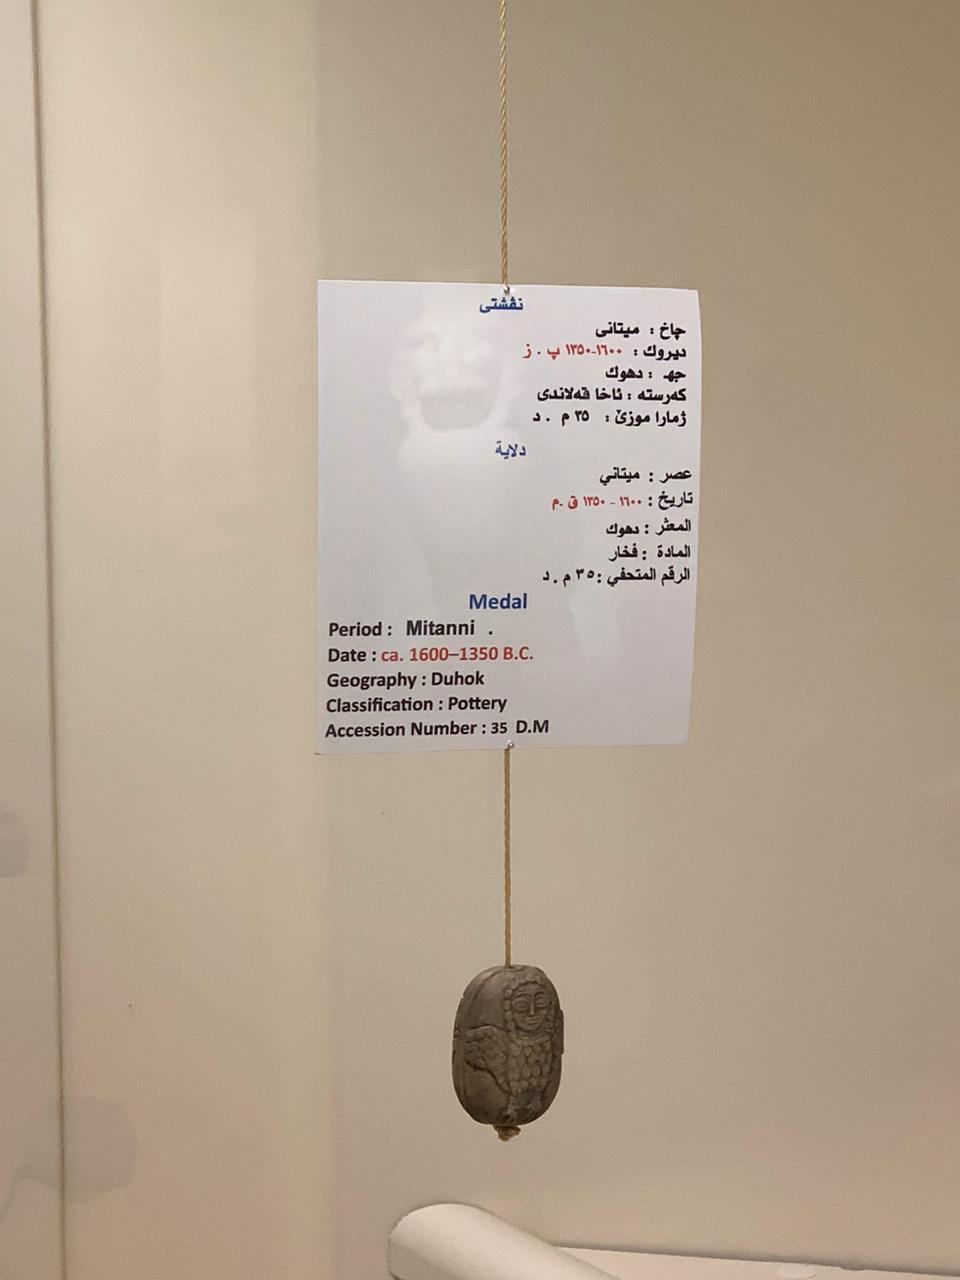 نڤشتی
چاخ : میتانی
دیروك : ١٦٠٠-١٣٥٠ پ . ز
جهـ : دهوك
كەرستە : ئاخا قەلاندی
ژمارا موزێ : ٣٥ م . د
دلاية
عصر : ميتاني
تاريخ : ١٦٠٠ - ١٣٥٠ ق .م
المعثر : دهوك
المادة : فخار
الرقم المتحفي :٣٥ م . د
Medal
Period : Mitanni .
Date : ca. 1600–1350 B.C.
Geography : Duhok
Classification : Pottery
Accession Number : 35 D.M